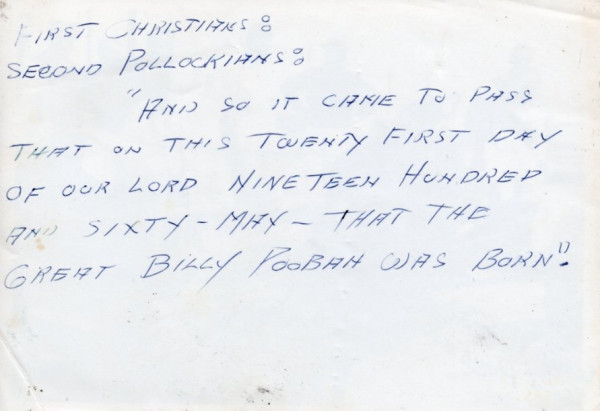 FIRST CHRISTIANS:
SECOND POLLOCKIANS:
"AND SO IT CAME TO PASS
THAT ON THIS TWENTY FIRST DAY
OF OUR LORD NINETEEN HUNDRED
AND SIXTY - MAY - THAT THE
GREAT BILLY POOBAH WAS BORN".